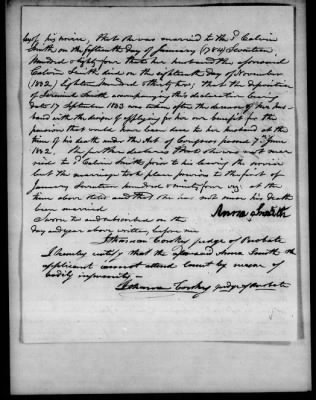 of his service, that she was married to the sd Calvin
Smith on the fifteenth day of January (1784) Seventeen
Hundred & Eighty four that her husband the aforesaid
Calvin Smith died on the eighteenth day of November
(1832) Eighteen Hundred thirty two, that the deposition
of Jeremiah Smith accompanying this declaration bearing
date 17 September 1833 was taken after the decease of her hus-
band with the design of applying for her own benefit for the
pension that would have been due to her husband at the
time of his death under the Act of Congress passed 7th June
1832. She further declares that she was not mar-
ried to sd Calvin Smith prior to his leaving the service
but the marriage took place previous to the first of
January seventeen hundred & ninety four viz. at the
time above stated and that she has not since his death
been married
Anna Smith
Sworn to and subscribed on the
day and year above written, before me
judge of Probate
I hereby certify that the aforesaid Anna Smith the
applicant cannot attend court by reason of
bodily infirmity —
judge of Probate